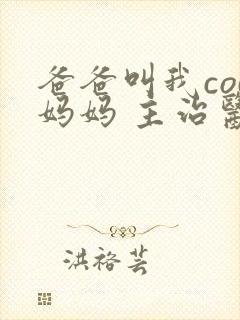 爸爸叫我co
妈妈 主治
洪裕芸